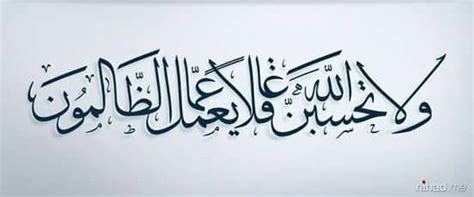 ولا تحسبنّ اللهَ غٰفلًا عمّا يعمل الظّالمون
nihad.me